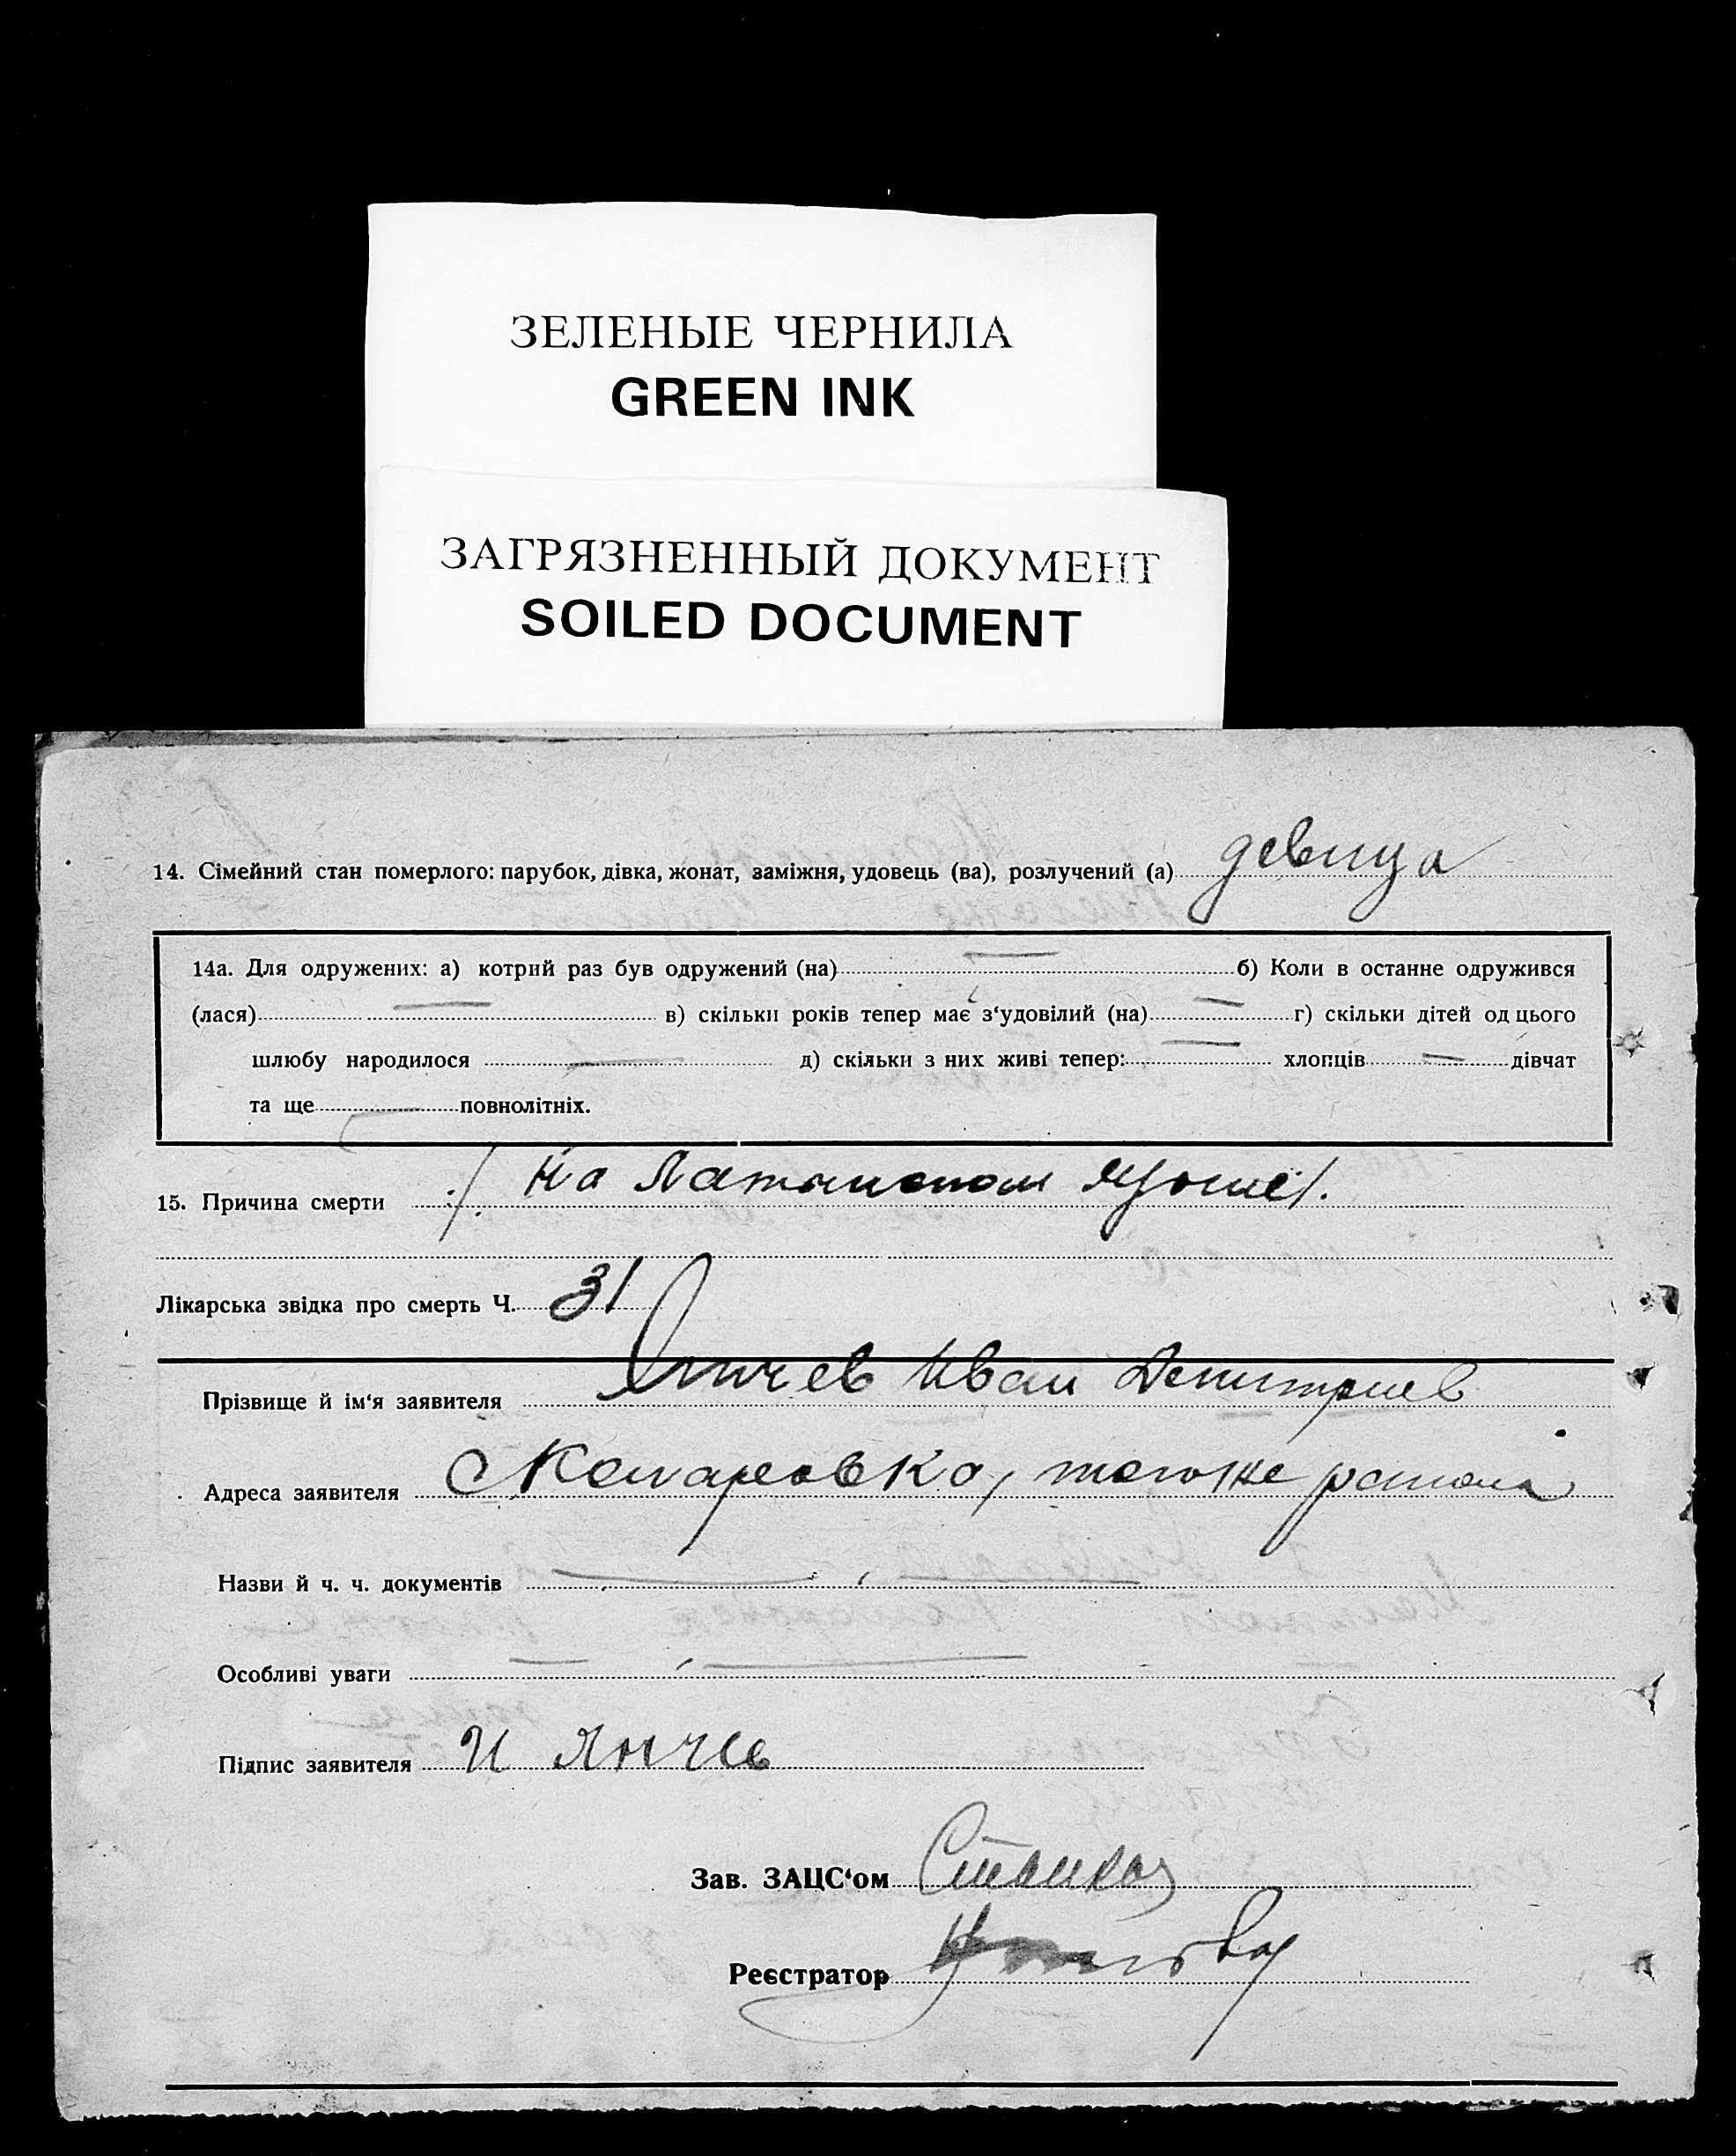 ЗЕЛЕНЫЕ ЧЕРНИЛА
GREEN INK
ЗАГРЯЗНЕННЫЙ ДОКУМЕНТ
SOILED DOCUMENT
14. Сімейний стан померлого: парубок, дівка, жонат, заміжня, удовець (ва), розлучений (а) девица
14а. Для одружених: а) котрий раз був одружений (на) — б) Коли в останне одружився
(лася) — в) скільки років тепер має з‘удовілий (на) — г) скільки дітей од цього
шлюбу народилося — д) скільки з них живі тепер: — хлопців — дівчат
та ще — повнолітніх.
15. Причина смерти На
Лікарська звідка про смерть Ч. 31
Прізвище й ім‘я заявителя Янчев Иван Демитриев
Адреса заявителя тогоже района
Назви й ч. ч. документів —
Особливі уваги —
Підпис заявителя И Янчев
Зав. ЗАЦС‘ом
Реєстратор